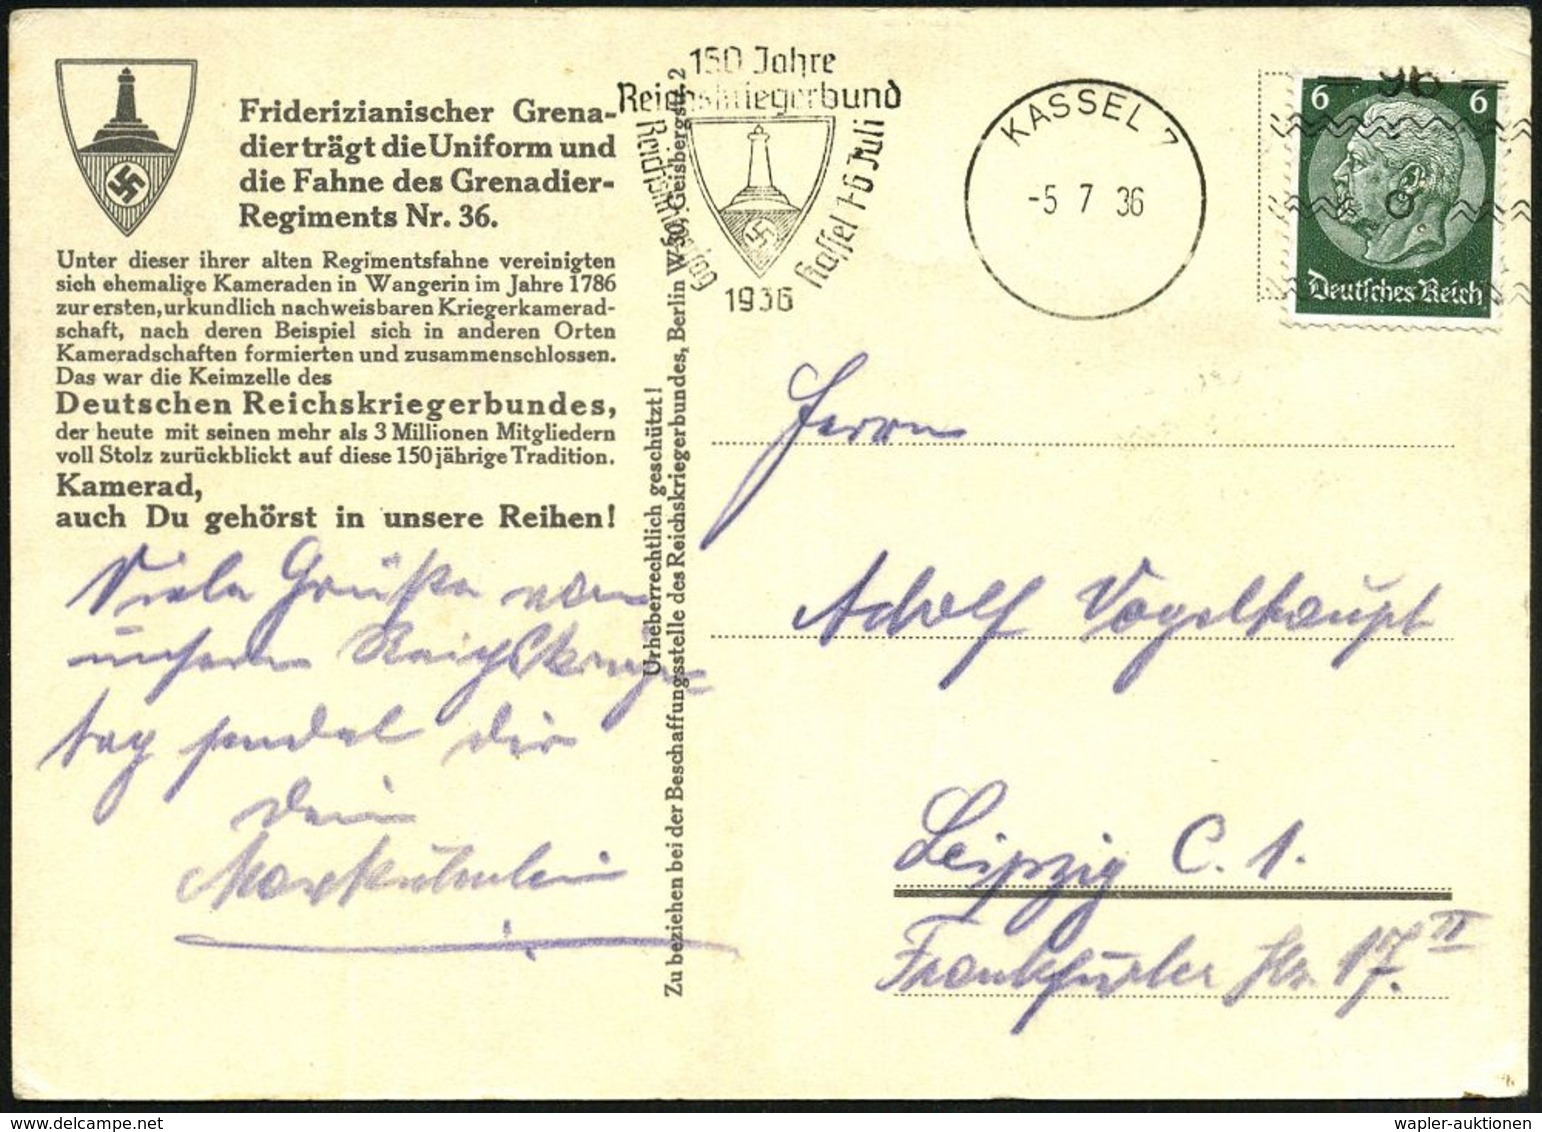 Friderizianischer Grena-
dier trägt die Uniform und
die Fahne des Grenadier-
Regiments Nr. 36.
Unter dieser ihrer alten Regimentsfahne vereinigten
sich ehemalige Kameraden in Wangerin im Jahre 1786
zur ersten, urkundlich nachweisbaren Kriegerkamerad-
schaft, nach deren Beispiel sich in anderen Orten
Kameradschaften formierten und zusammenschlossen.
Das war die Keimzelle des
Deutschen Reichskriegerbundes,
der heute mit seinen mehr als 3 Millionen Mitgliedern
voll Stolz zurückblickt auf diese 150jährige Tradition.
Kamerad,
auch Du gehörst in unsere Reihen!
Viele Grüße von
unserm Reichskrieger
tag sendet dir
dein
Urheberrechtlich geschützt!
Zu beziehen bei der Beschaffungsstelle des Reichskriegerbundes, Berlin W 30, Geisbergstr. 2
150 Jahre
Reichskriegerbund
Reichskriegertag
Kassel 1-6 Juli
1936
KASSEL 7
-5 7 36
6 6
Deutsches Reich
Herrn
Adolf Vogelhaupt
Leipzig C. 1.
Frankfurter Str. 17. II
wapler-auktionen